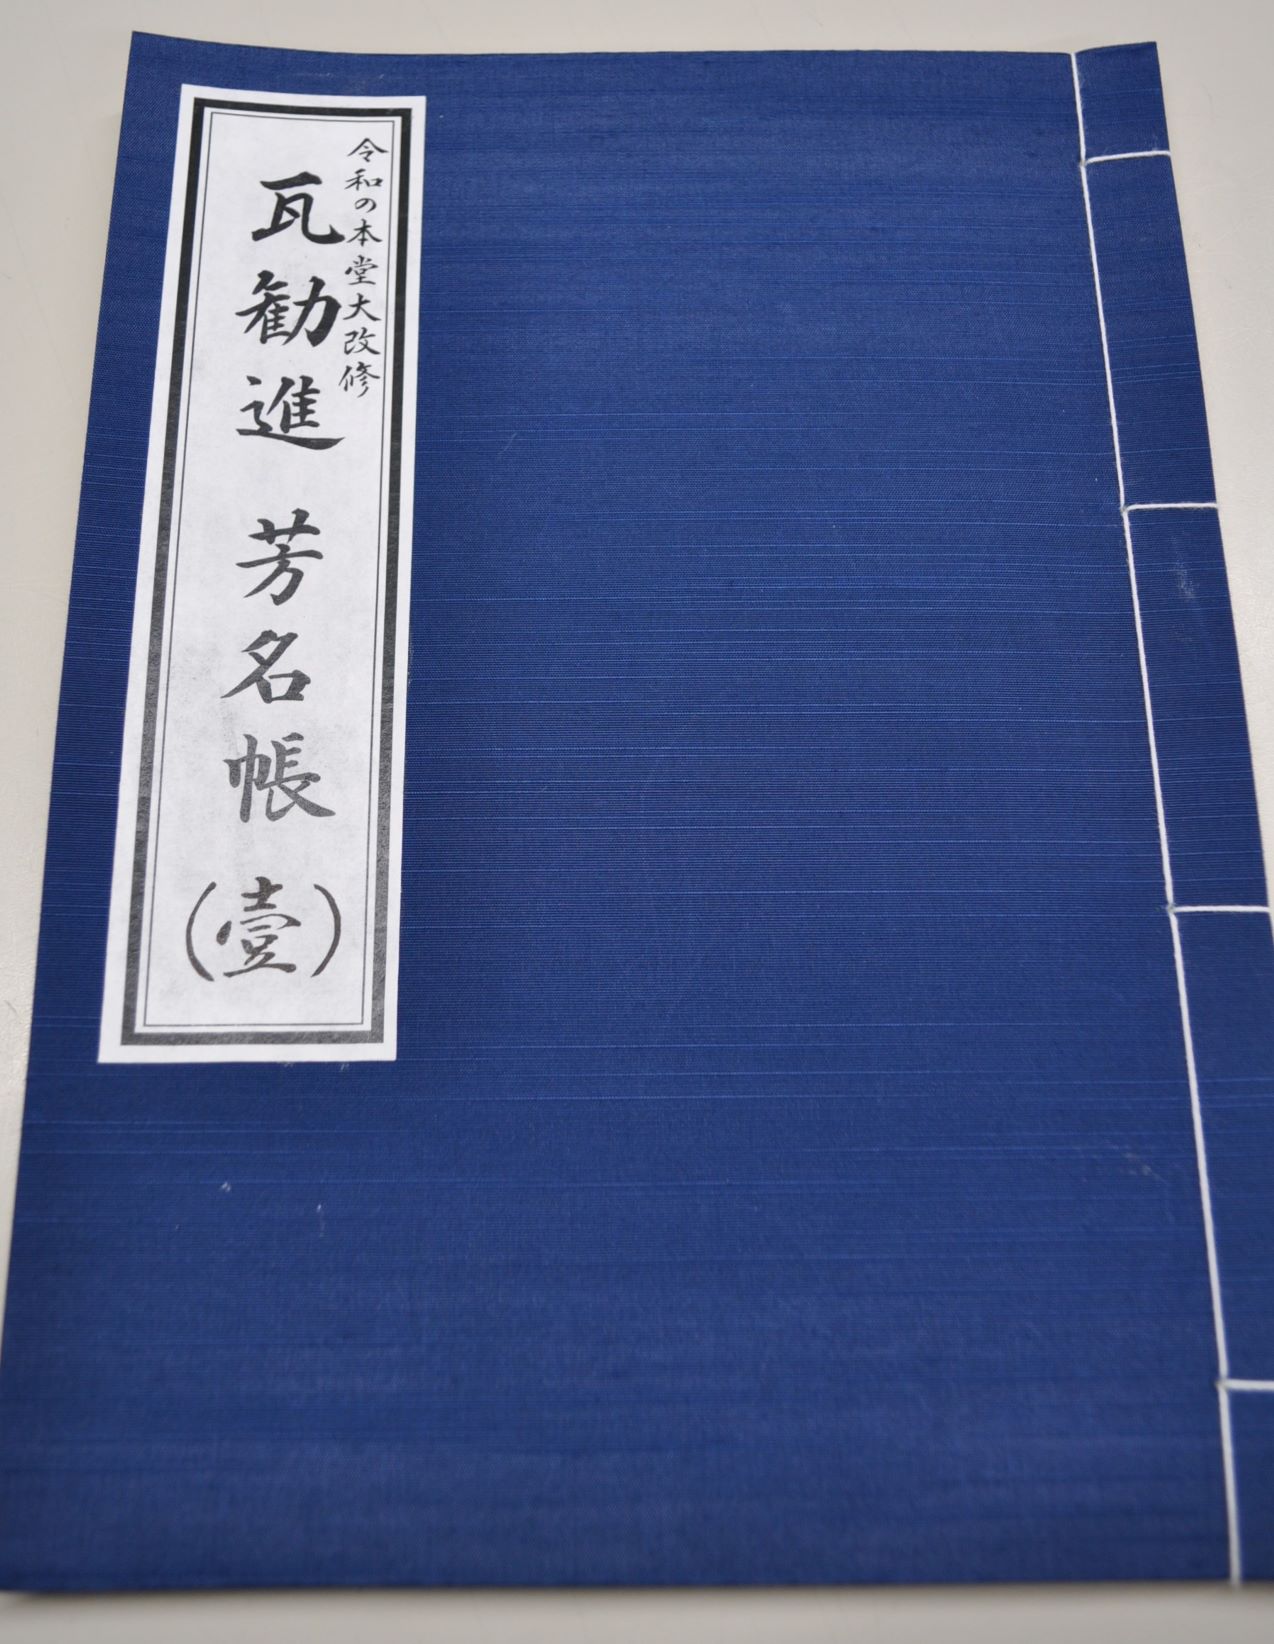 令和の本堂大改修
瓦勧進 芳名帳(壹)